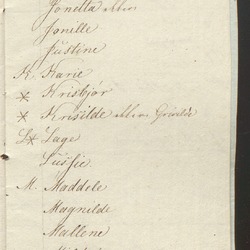 Jonetta eller
Jonille
Jüstine
K. Karie
* Krisbjór
* Krisilde eller Grisilde
L* Lage
Lüsfie
M. Maddele
Magnilde
Mallene